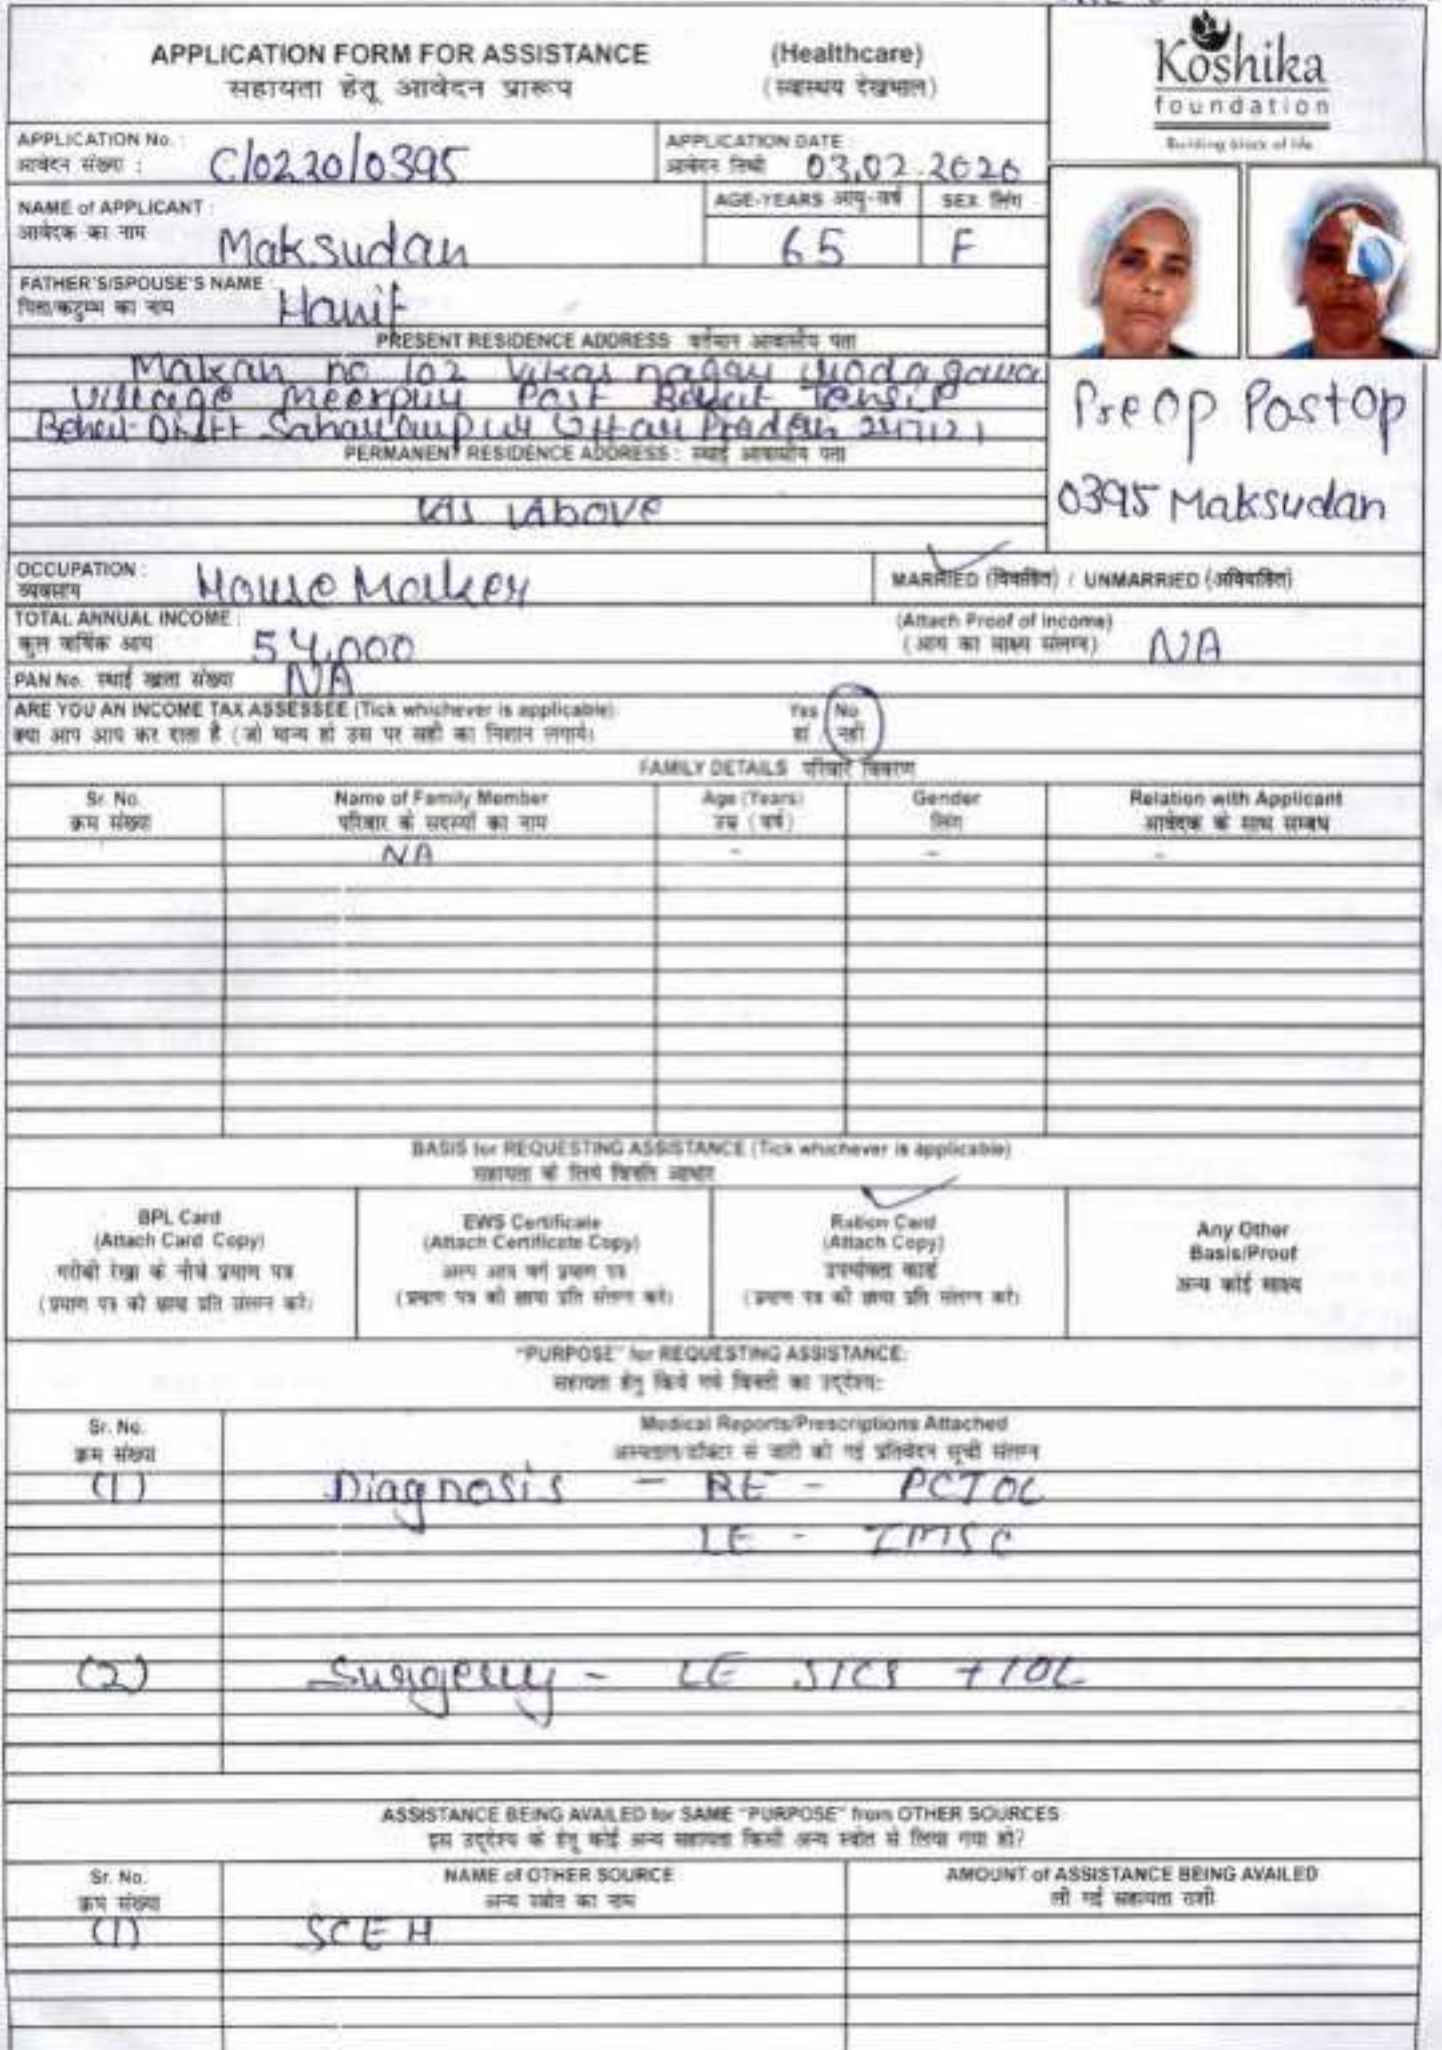 APPLICATION FORM FOR ASSISTANCE (Healthcare)
सहायता हेतू आवेदन प्रारूप (स्वास्थय देखभाल)
Koshika
foundation
Building block of life
APPLICATION No. :
आवेदन संख्या : C/0220/0395
APPLICATION DATE :
आवेदन तिथी 03.02.2020
NAME of APPLICANT :
आवेदक का नाम Maksudan
AGE-YEARS आयु-वर्ष 65
SEX लिंग F
FATHER'S/SPOUSE'S NAME :
पिता/कटुम्ब का नाम Hanif
PRESENT RESIDENCE ADDRESS वर्तमान आवासीय पता
Makan no 102 Vikas nagar
Village Meerpur Post Behat Tehsil
Behat Distt Saharanpur Uttar Pradesh 247121
PERMANENT RESIDENCE ADDRESS : स्थाई आवासीय पता
As Above
PreOp PostOp
0395 Maksudan
OCCUPATION :
व्यवसाय House Maker
MARRIED (विवाहित) / UNMARRIED (अविवाहित)
TOTAL ANNUAL INCOME :
कुल वार्षिक आय 54,000
(Attach Proof of Income)
(आय का साक्ष्य संलग्न) NA
PAN No. स्थाई खाता संख्या NA
ARE YOU AN INCOME TAX ASSESSEE (Tick whichever is applicable): Yes No
क्या आप आय कर दाता है (जो मान्य हो उस पर सही का निशान लगाये। हां नहीं
FAMILY DETAILS परिवार विवरण
Sr. No. Name of Family Member Age (Years) Gender Relation with Applicant
क्रम संख्या परिवार के सदस्यों का नाम उम्र (वर्ष) लिंग आवेदक के साथ सम्बंध
NA - - -
BASIS for REQUESTING ASSISTANCE (Tick whichever is applicable)
सहायता के लिये विनति आधार
BPL Card
(Attach Card Copy)
गरीबी रेखा के नीचे प्रमाण पत्र
(प्रमाण पत्र की छाया प्रति संलग्न करे)
EWS Certificate
(Attach Certificate Copy)
अल्प आय वर्ग प्रमाण पत्र
(प्रमाण पत्र की छाया प्रति संलग्न करे)
Ration Card
(Attach Copy)
उपभोक्ता कार्ड
(प्रमाण पत्र की छाया प्रति संलग्न करे)
Any Other
Basis/Proof
अन्य कोई साक्ष्य
"PURPOSE" for REQUESTING ASSISTANCE:
सहायता हेतु किये गये विनती का उद्देश्य:
Sr. No. Medical Reports/Prescriptions Attached
क्रम संख्या अस्पताल/डॉक्टर से जारी की गई प्रतिवेदन सूची संलग्न
(1) Diagnosis - RE - PCIOL
LE - IMSC
(2) Surgery - LE SICS + IOL
ASSISTANCE BEING AVAILED for SAME "PURPOSE" from OTHER SOURCES
इस उद्देश्य के हेतु कोई अन्य सहायता किसी अन्य स्त्रोत से लिया गया हो?
Sr. No. NAME of OTHER SOURCE AMOUNT of ASSISTANCE BEING AVAILED
क्रम संख्या अन्य स्त्रोत का नाम ली गई सहायता राशी
(1) SCEH